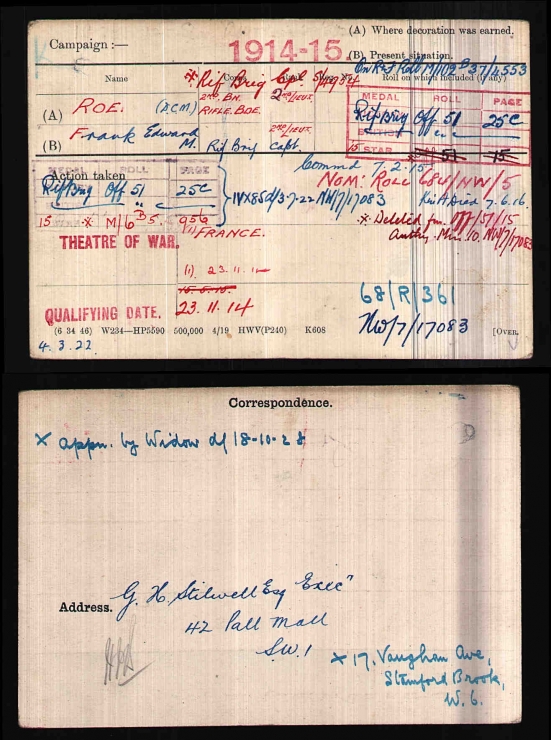 (A) Where decoration was earned.
Campaign :— 1914-15.
(B) Present situation.
Name Corps Rank Roll on which included (if any)
* Rif Brig Cpl.
(A) ROE. (DCM) 2ND. BN. RIFLE. BDE. 2ND/LIEUT.
MEDAL ROLL PAGE
Rif Brig Off 51 25C
Frank Edward
(B) M. Rif Brig 2ND/LIEUT. Capt.
15 STAR 51 15
Commd 7.2.15
Action taken MEDAL ROLL PAGE
Rif Brig Off 51 25C
IVX850/3-7-22. NW/7/17083
NOM: ROLL 68U/NW/5
K. in A. Died 7.6.16.
15 STAR * M/6 B5. 956
* Deleted fm. Off/57/15
Authy. Min 10. NW/7/17083
THEATRE OF WAR. (1) FRANCE.
(1). 23.11.14
QUALIFYING DATE. 23.11.14
68/R/361
NW/7/17083
(6 34 46) W234—HP5590 500,000 4/19 HWV(P240) K608 [OVER.
4.3.22
Correspondence.
X appn. by Widow d/ 18-10-28
Address. G. H. Stilwell Esq "Exec"
42 Pall Mall
S.W.1
X 17, Vaughan Ave,
Stamford Brook,
W.6.